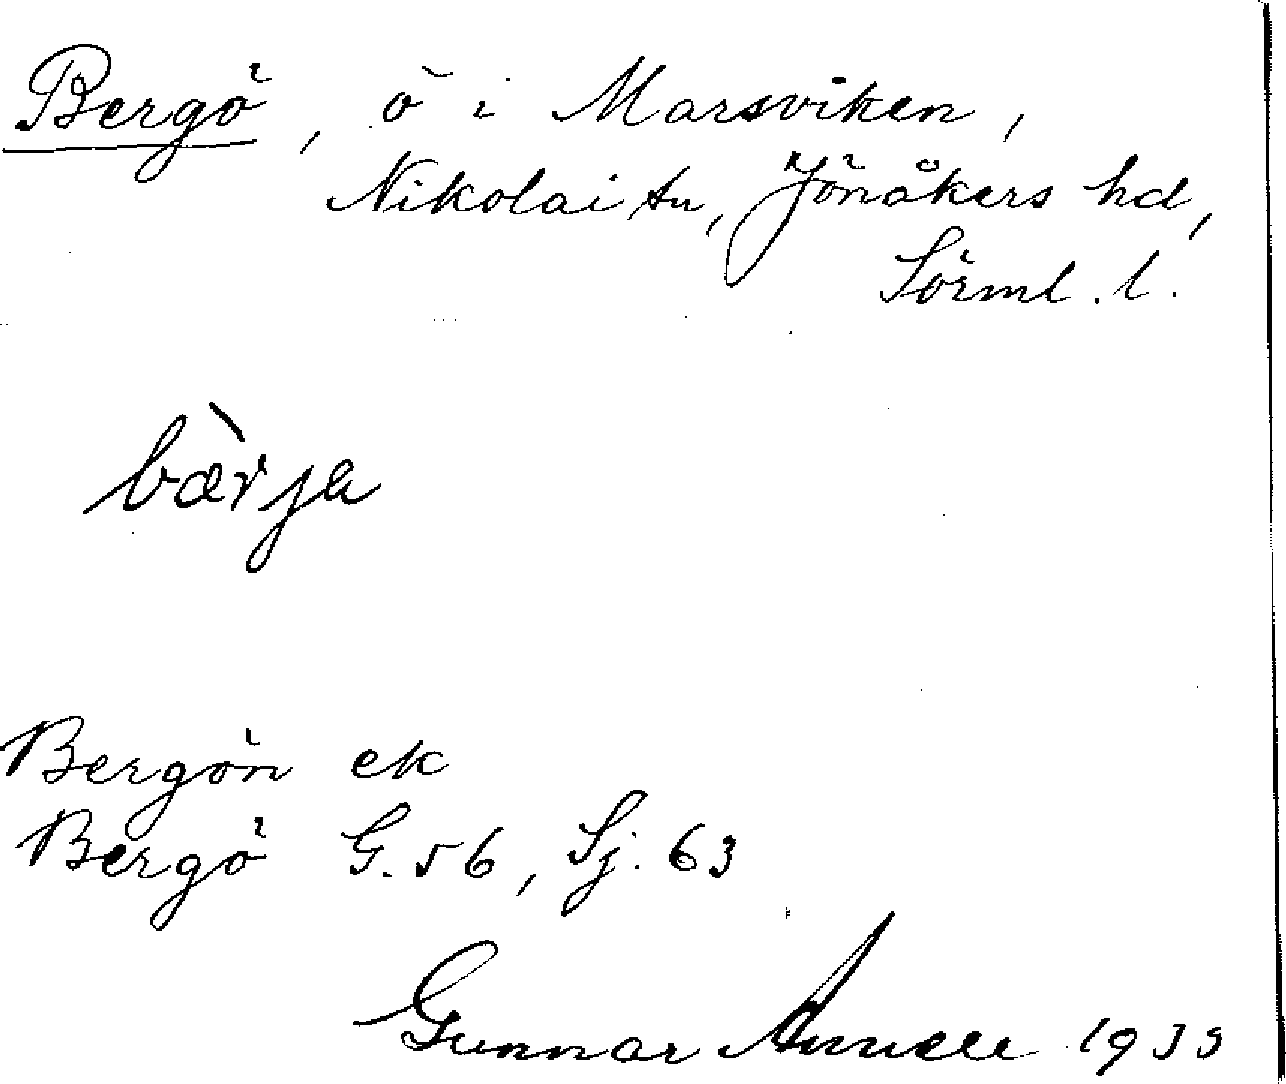 Bergö, ö i Marsviken,
Nikolai sn, Jönåkers hd,
Sörml. l.
bæ̀rja
Bergön ek
Bergö G. 56, Sj. 63
Gunnar Annell 1935